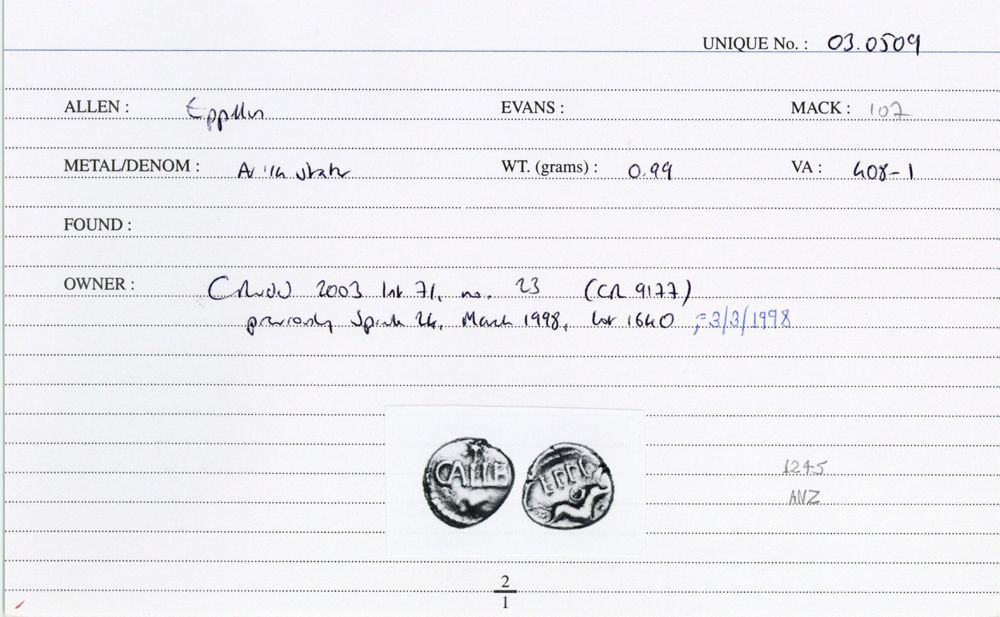 UNIQUE No. : 03.0509
ALLEN : Eppillus EVANS : MACK : 107
METAL/DENOM : AV 1/4 stater WT. (grams) : 0.99 VA : 408-1
FOUND :
OWNER : CRuDD 2003 list 71, no. 23 (CR 9177)
previously Spink 24, March 1998, lot 1640 ; = 3/3/1998
CALLE EPPI
1245
ANZ
2
1